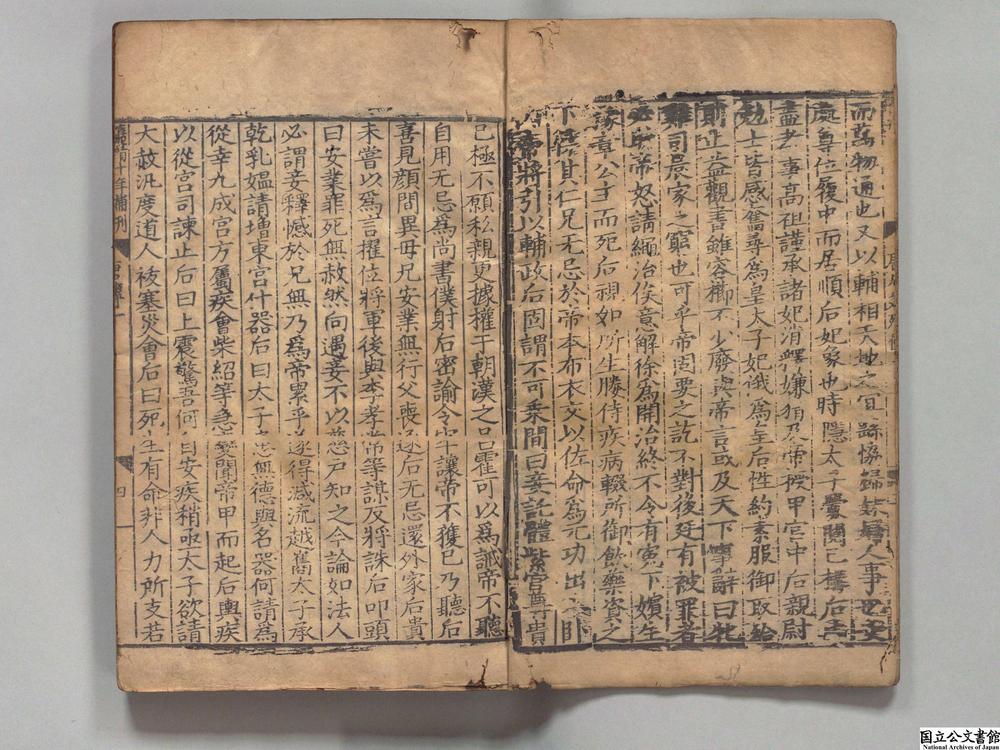 而萬物通也又以輔相天地之宜繇協歸妹婦人事也女
處尊位履中而居順后妃象也時隱太子釁鬩已構后內
盡孝事高祖謹承諸妃消釋嫌猜及帝授甲宮中后親尉
勉士皆感奮尋為皇太子妃俄為皇后性約素服御取給
則止益觀書雖容櫛不少廢與帝言或及天下事辭曰牝
雞司晨家之窮也可乎帝固要之訖不對後廷有被罪者
必助帝怒請繩治俟意解徐為開治終不令有冤下嬪生
豫章公主而死后視如所生媵侍疾病輟所御飲藥資之
下懷其仁兄无忌於帝本布衣交以佐命為元功出入臥
帝將引以輔政后固謂不可乘間曰妾託體紫宮尊貴
已極不願私親更據權于朝漢之呂霍可以為誡帝不聽
自用无忌為尚書僕射后密諭令牢讓帝不獲已乃聽后
喜見顏間異母兄安業無行父喪逐后无忌還外家后貴
未嘗以為言擢位將軍後與李孝常等謀反將誅后叩頭
曰安業罪死無赦然向遇妾不以慈戶知之今論如法人
必謂妾釋憾於兄無乃為帝累乎遂得減流越嶲太子承
乾乳媪請增東宮什器后曰太子患無德與名器何請為
從幸九成宮方屬疾會柴紹等急變聞帝甲而起后輿疾
以從宮司諫止后曰上震驚吾何自安疾稍亟太子欲請
大赦汎度道人祓塞災會后曰死生有命非人力所支若
四